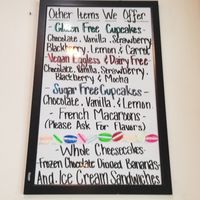 Other Items We Offer
-Gluten Free Cupcakes-
Chocolate, Vanilla, Strawberry
Blackberry, Lemon & Carrot
Vegan Eggless & Dairy Free
Chocolate, Vanilla, Strawberry,
Blackberry & Mocha
-Sugar Free Cupcakes-
-Chocolate, Vanilla, & Lemon
-French Macaroons-
(Please Ask For Flavors)
-Whole Cheesecakes
-Frozen Chocolate Dipped Bananas-
And, Ice Cream Sandwiches